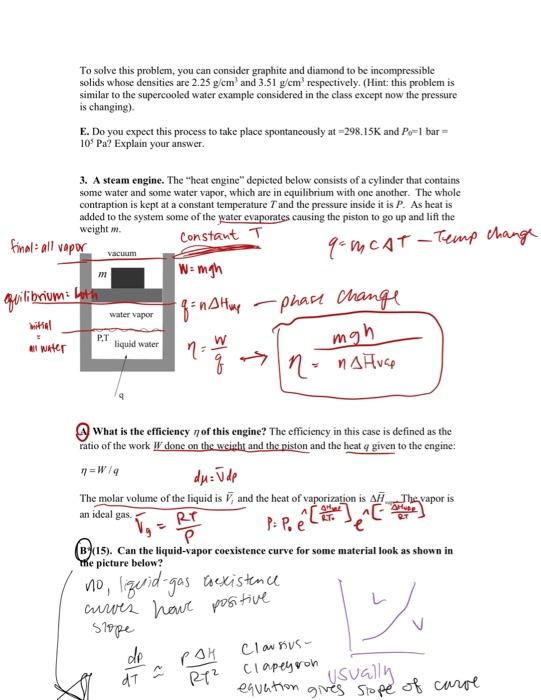 To solve this problem, you can consider graphite and diamond to be incompressible
solids whose densities are 2.25 g/cm³ and 3.51 g/cm³ respectively. (Hint: this problem is
similar to the supercooled water example considered in the class except now the pressure
is changing).
E. Do you expect this process to take place spontaneously at =298.15K and P₀=1 bar =
10⁵ Pa? Explain your answer.
3. A steam engine. The “heat engine” depicted below consists of a cylinder that contains
some water and some water vapor, which are in equilibrium with one another. The whole
contraption is kept at a constant temperature T and the pressure inside it is P. As heat is
added to the system some of the water evaporates causing the piston to go up and lift the
weight m.
constant T
q=mCΔT – Temp change
final: all vapor
vacuum
m
W=mgh
equilibrium: both
water vapor
q=nΔHvap – phase change
initial
=
all water
P,T
liquid water
η = W/q → η = mgh / nΔH̄vap
q
A What is the efficiency η of this engine? The efficiency in this case is defined as the
ratio of the work W done on the weight and the piston and the heat q given to the engine:
η = W / q
dμ = V̄dp
The molar volume of the liquid is V̄ₗ and the heat of vaporization is ΔH̄vap. The vapor is
an ideal gas.
V̄g = RT/P
P = P₀ e^[ΔHvap/RT₀] e^[-ΔHvap/RT]
B*(15). Can the liquid-vapor coexistence curve for some material look as shown in
the picture below?
no, liquid-gas coexistence
curves have positive
slope
L
V
dp/dT ≈ PΔH/RT²
Clausius-
Clapeyron
equation gives slope of curve
usually